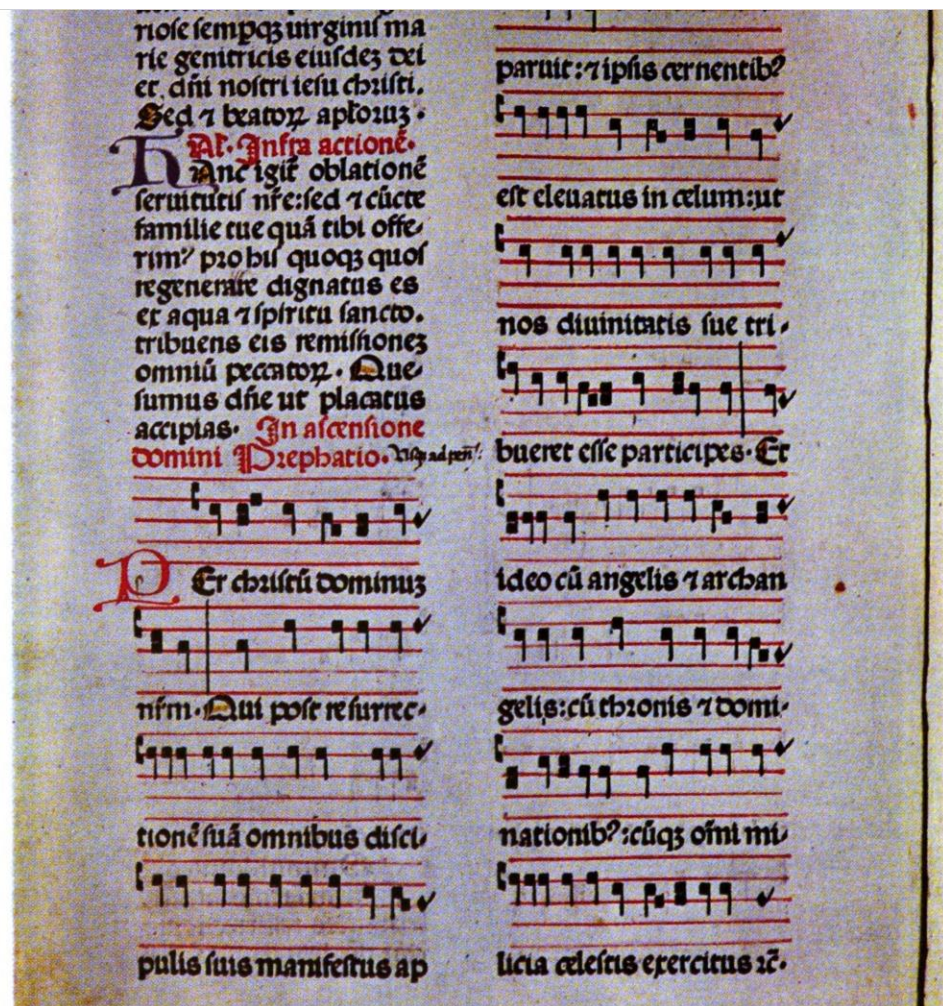 riose sempqꝫ uirginis ma
rie genitricis eiusdeꝫ dei
et dñi nostri iesu christi.
Sed ⁊ beatoꝝ aptoruꝫ.
Ak. Infra actionē.
Hanc igit̄ oblationē
seruitutis nr̄e: sed ⁊ cūcte
familie tue quā tibi offe,
rim⁹ pro his quoqꝫ quos
regenerare dignatus es
ex aqua ⁊ spiritu sancto.
tribuens eis remissioneꝫ
omniū peccatoꝝ. Que,
sumus dn̄e ut placatus
accipias. In ascensione
domini Prephatio.
PEr christū dominuꝫ
nr̄m. Qui post resurrec,
tionē suā omnibus disci,
pulis suis manifestus ap
paruit: ⁊ ipsis cernentib⁹
est eleuatus in celum: ut
nos diuinitatis sue tri,
bueret esse participes. Et
ideo cū angelis ⁊ archan
gelis: cū thronis ⁊ domi,
nationib⁹: cūqꝫ om̄i mi,
licia celestis exercitus ⁊c̄.